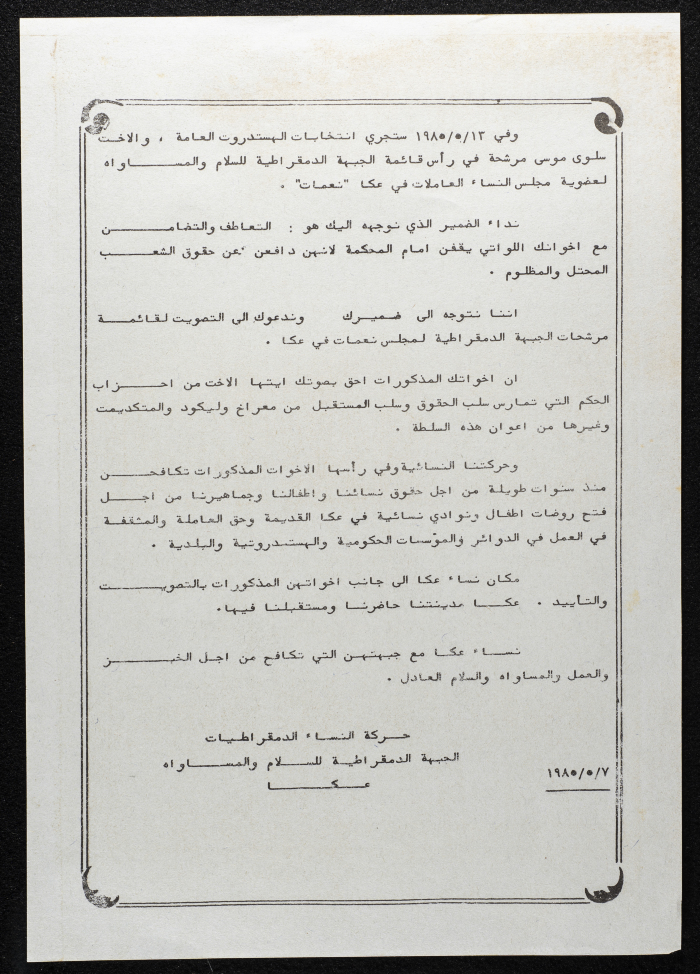 وفي ١٩٨٥/٥/١٣ ستجري انتخابات الهستدروت العامة ، والاخت
سلوى موسى مرشحة في رأس قائمة الجبهة الدمقراطية للسلام والمساواه
لعضوية مجلس النساء العاملات في عكا "نعمات" .
نداء الضمير الذي نوجهه اليك هو : التعاطف والتضامن
مع اخواتك اللواتي يقفن امام المحكمة لانهن دافعن عن حقوق الشعب
المحتل والمظلوم .
اننا نتوجه الى ضميرك وندعوك الى التصويت لقائمة
مرشحات الجبهة الدمقراطية لمجلس نعمات في عكا .
ان اخواتك المذكورات احق بصوتك ايتها الاخت من احزاب
الحكم التي تمارس سلب الحقوق وسلب المستقبل من معراخ وليكود والمتكديمت
وغيرها من اعوان هذه السلطة .
وحركتنا النسائية وفي رأسها الاخوات المذكورات تكافحن
منذ سنوات طويلة من اجل حقوق نسائنا واطفالنا وجماهيرنا من اجل
فتح روضات اطفال ونوادي نسائية في عكا القديمة وحق العاملة والمثقفة
في العمل في الدوائر والمؤسسات الحكومية والهستدروتية والبلدية .
مكان نساء عكا الى جانب اخواتهن المذكورات بالتصويت
والتأييد . عكا مدينتنا حاضرنا ومستقبلنا فيها.
نساء عكا مع جبهتهن التي تكافح من اجل الخبز
والعمل والمساواه والسلام العادل .
حركة النساء الدمقراطيات
الجبهة الدمقراطية للسلام والمساواه
عكا
١٩٨٥/٥/٧